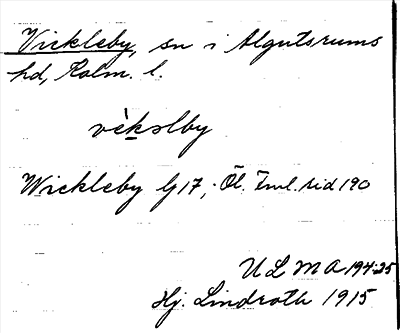 Vickleby, sn i Algutsrums
hd, Kalm. l.
vèkslby
Wickleby G 17; Öl. Fml. sid 190
ULMA 194:25
Hj. Lindroth 1915